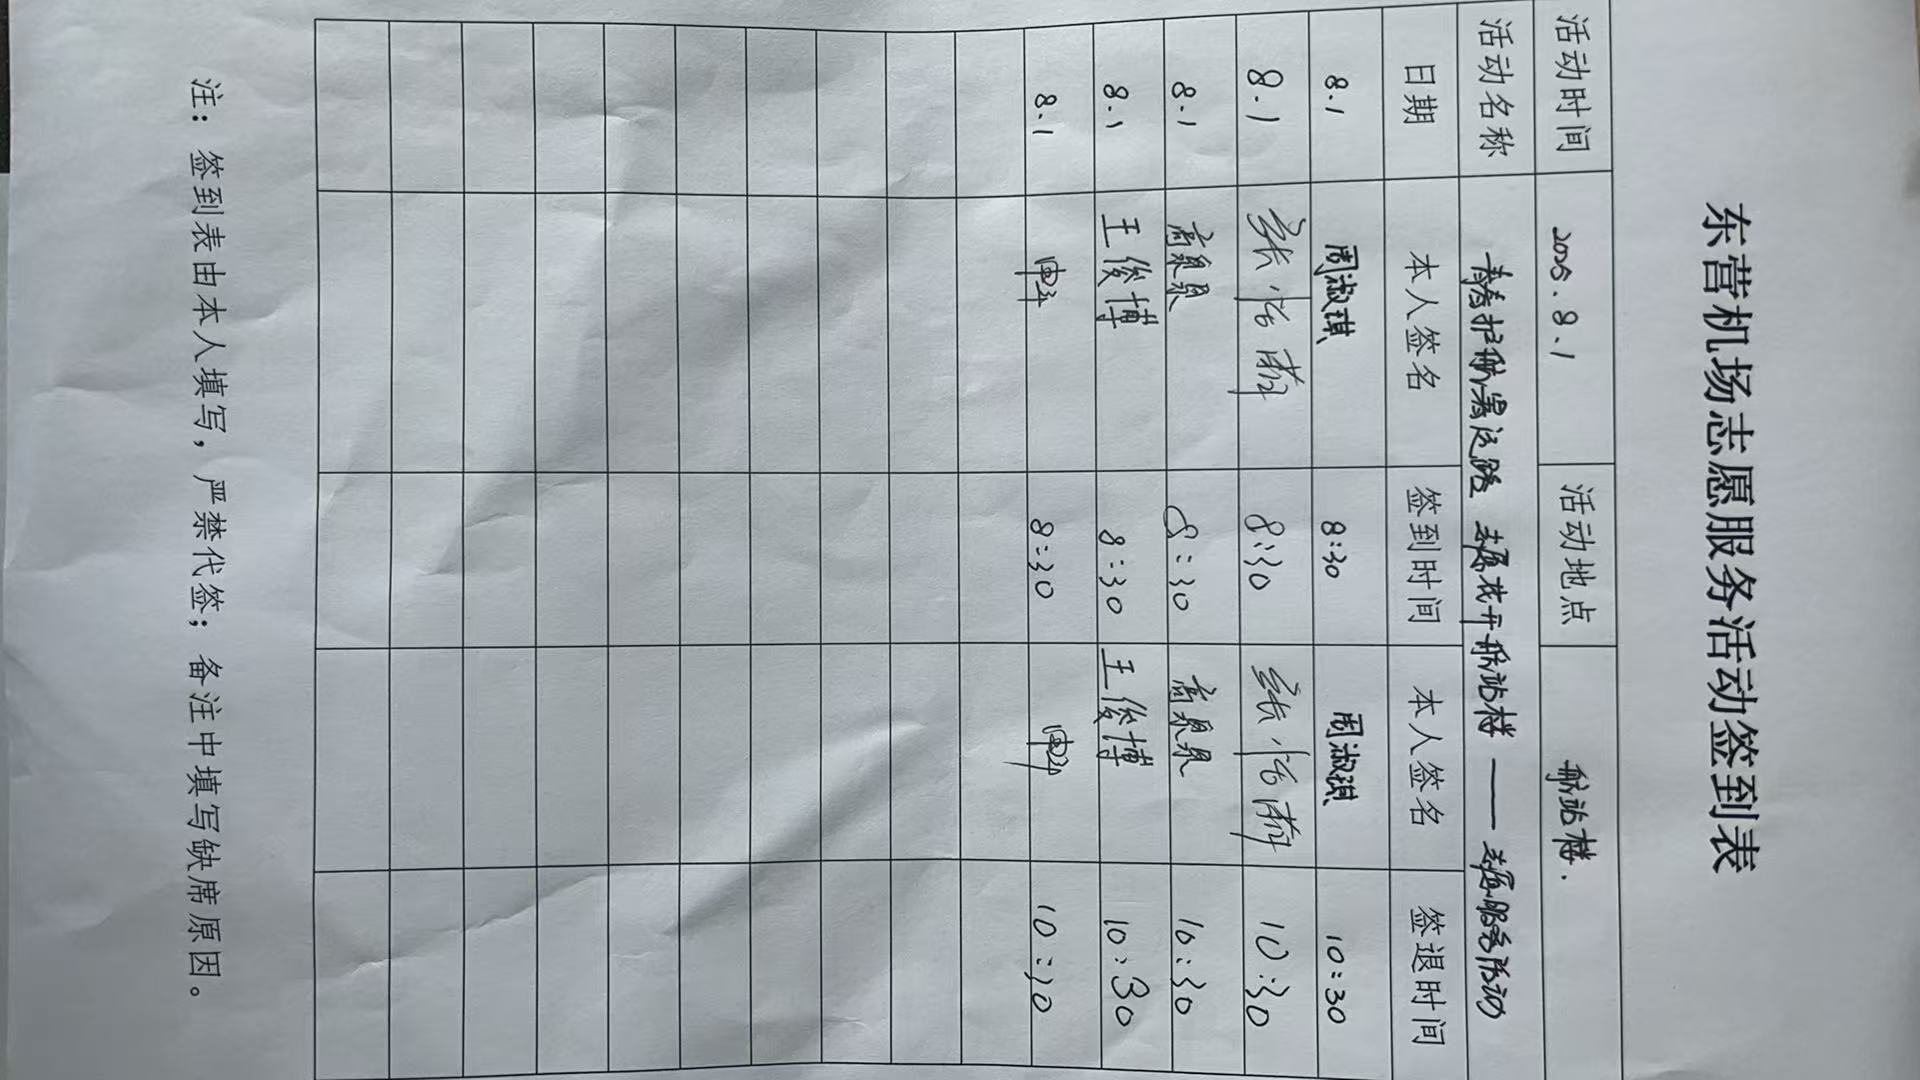 东营机场志愿服务活动签到表
活动时间 2025.8.1 活动地点 航站楼.
活动名称 青春护航暑运路 志愿花开航站楼 —— 志愿服务活动
日期 本人签名 签到时间 本人签名 签退时间
8.1 周淑琪 8:30 周淑琪 10:30
8.1 张 8:30 张 10:30
8.1 高泉泉 8:30 高泉泉 10:30
8.1 王俊博 8:30 王俊博 10:30
8.1 8:30 10:30
注：签到表由本人填写，严禁代签；备注中填写缺席原因。